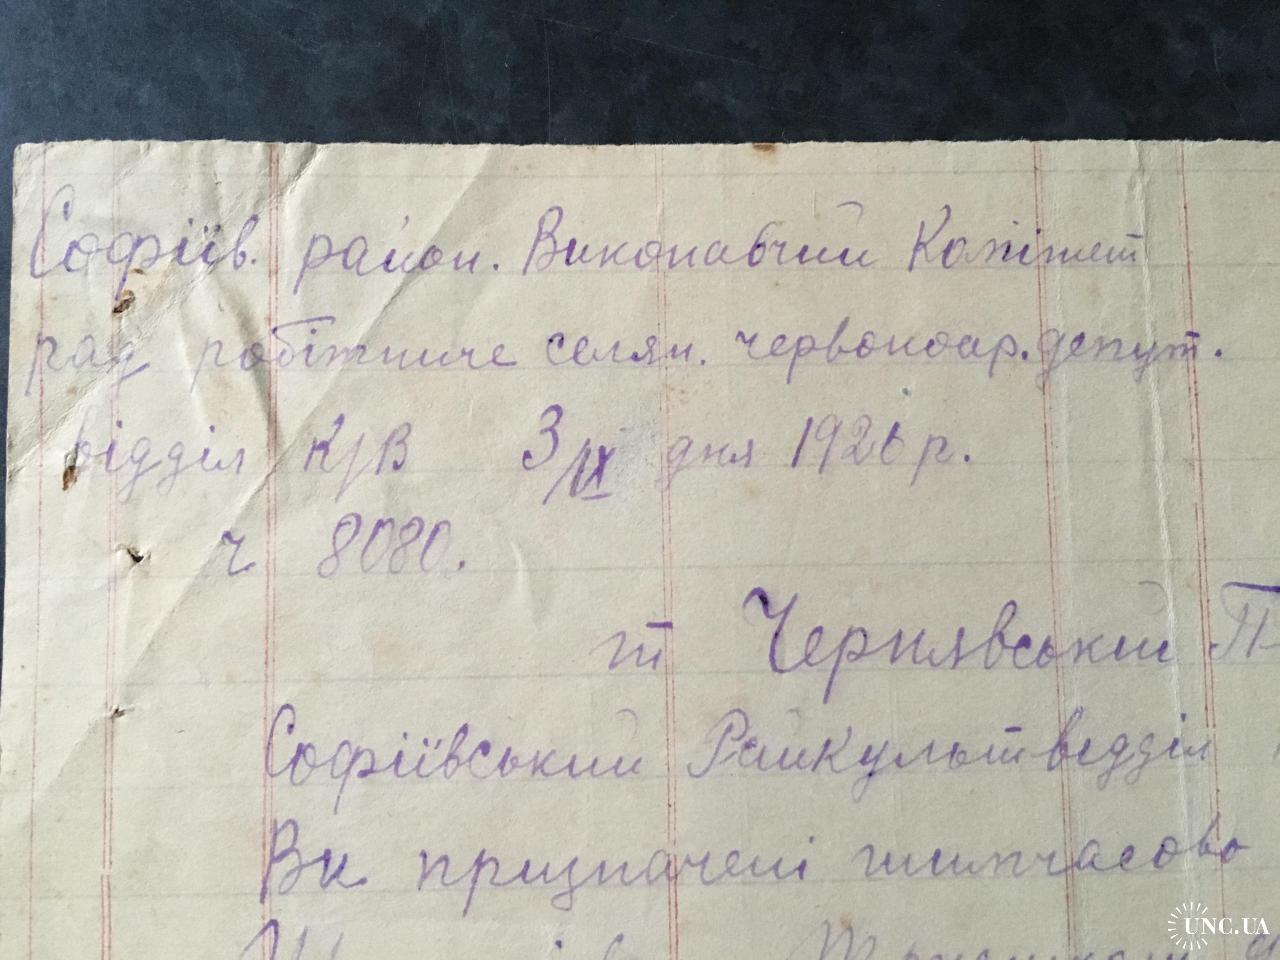 Софіїв. район. Виконавчий Комітет
рад робітниче селян. червоноар. депут.
відділ К/В 3/IX дня 1926 р.
ч 8080.
т Чернявський П
Софіївський Райкультвідділ
Ви призначені тимчасово
UNC.UA